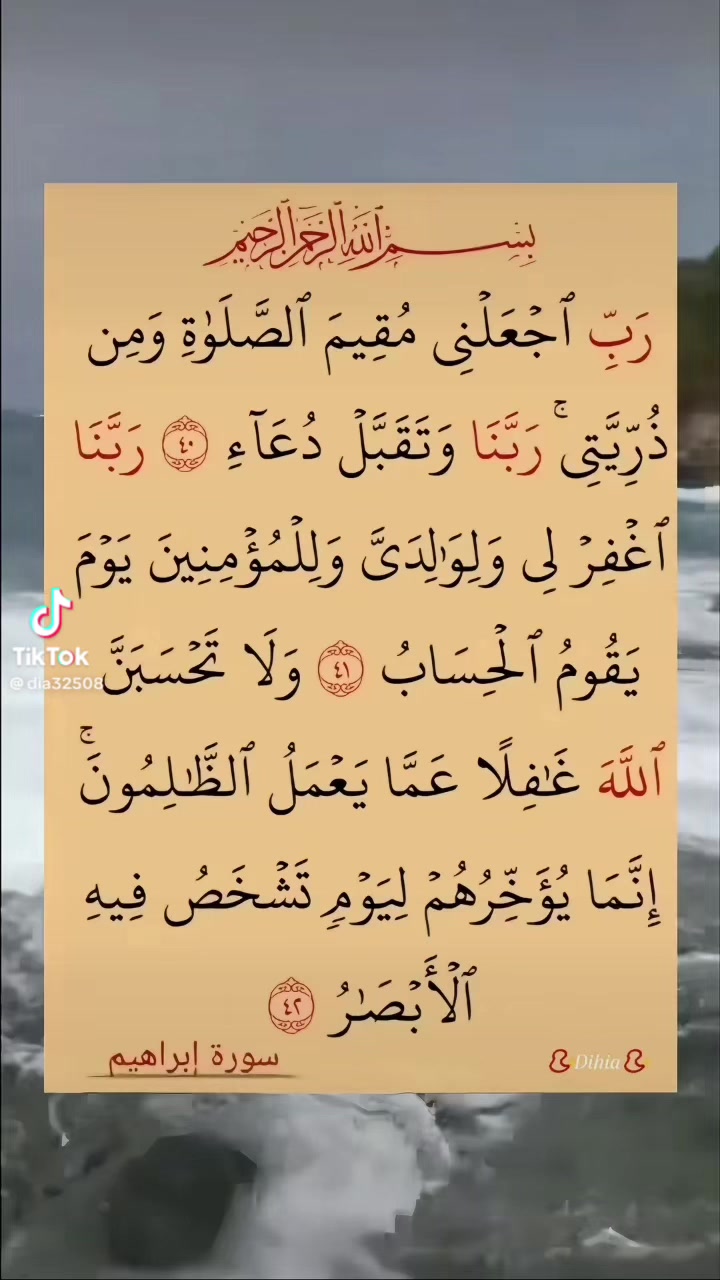 بِسْمِ ٱللَّهِ ٱلرَّحْمَٰنِ ٱلرَّحِيمِ
رَبِّ ٱجْعَلْنِى مُقِيمَ ٱلصَّلَوٰةِ وَمِن
ذُرِّيَّتِى ۚ رَبَّنَا وَتَقَبَّلْ دُعَآءِ ٤٠ رَبَّنَا
ٱغْفِرْ لِى وَلِوَٰلِدَىَّ وَلِلْمُؤْمِنِينَ يَوْمَ
يَقُومُ ٱلْحِسَابُ ٤١ وَلَا تَحْسَبَنَّ
ٱللَّهَ غَٰفِلًا عَمَّا يَعْمَلُ ٱلظَّٰلِمُونَ ۚ
إِنَّمَا يُؤَخِّرُهُمْ لِيَوْمٍ تَشْخَصُ فِيهِ
ٱلْأَبْصَٰرُ ٤٢
سورة إبراهيم
Dihia
TikTok
@dia32508